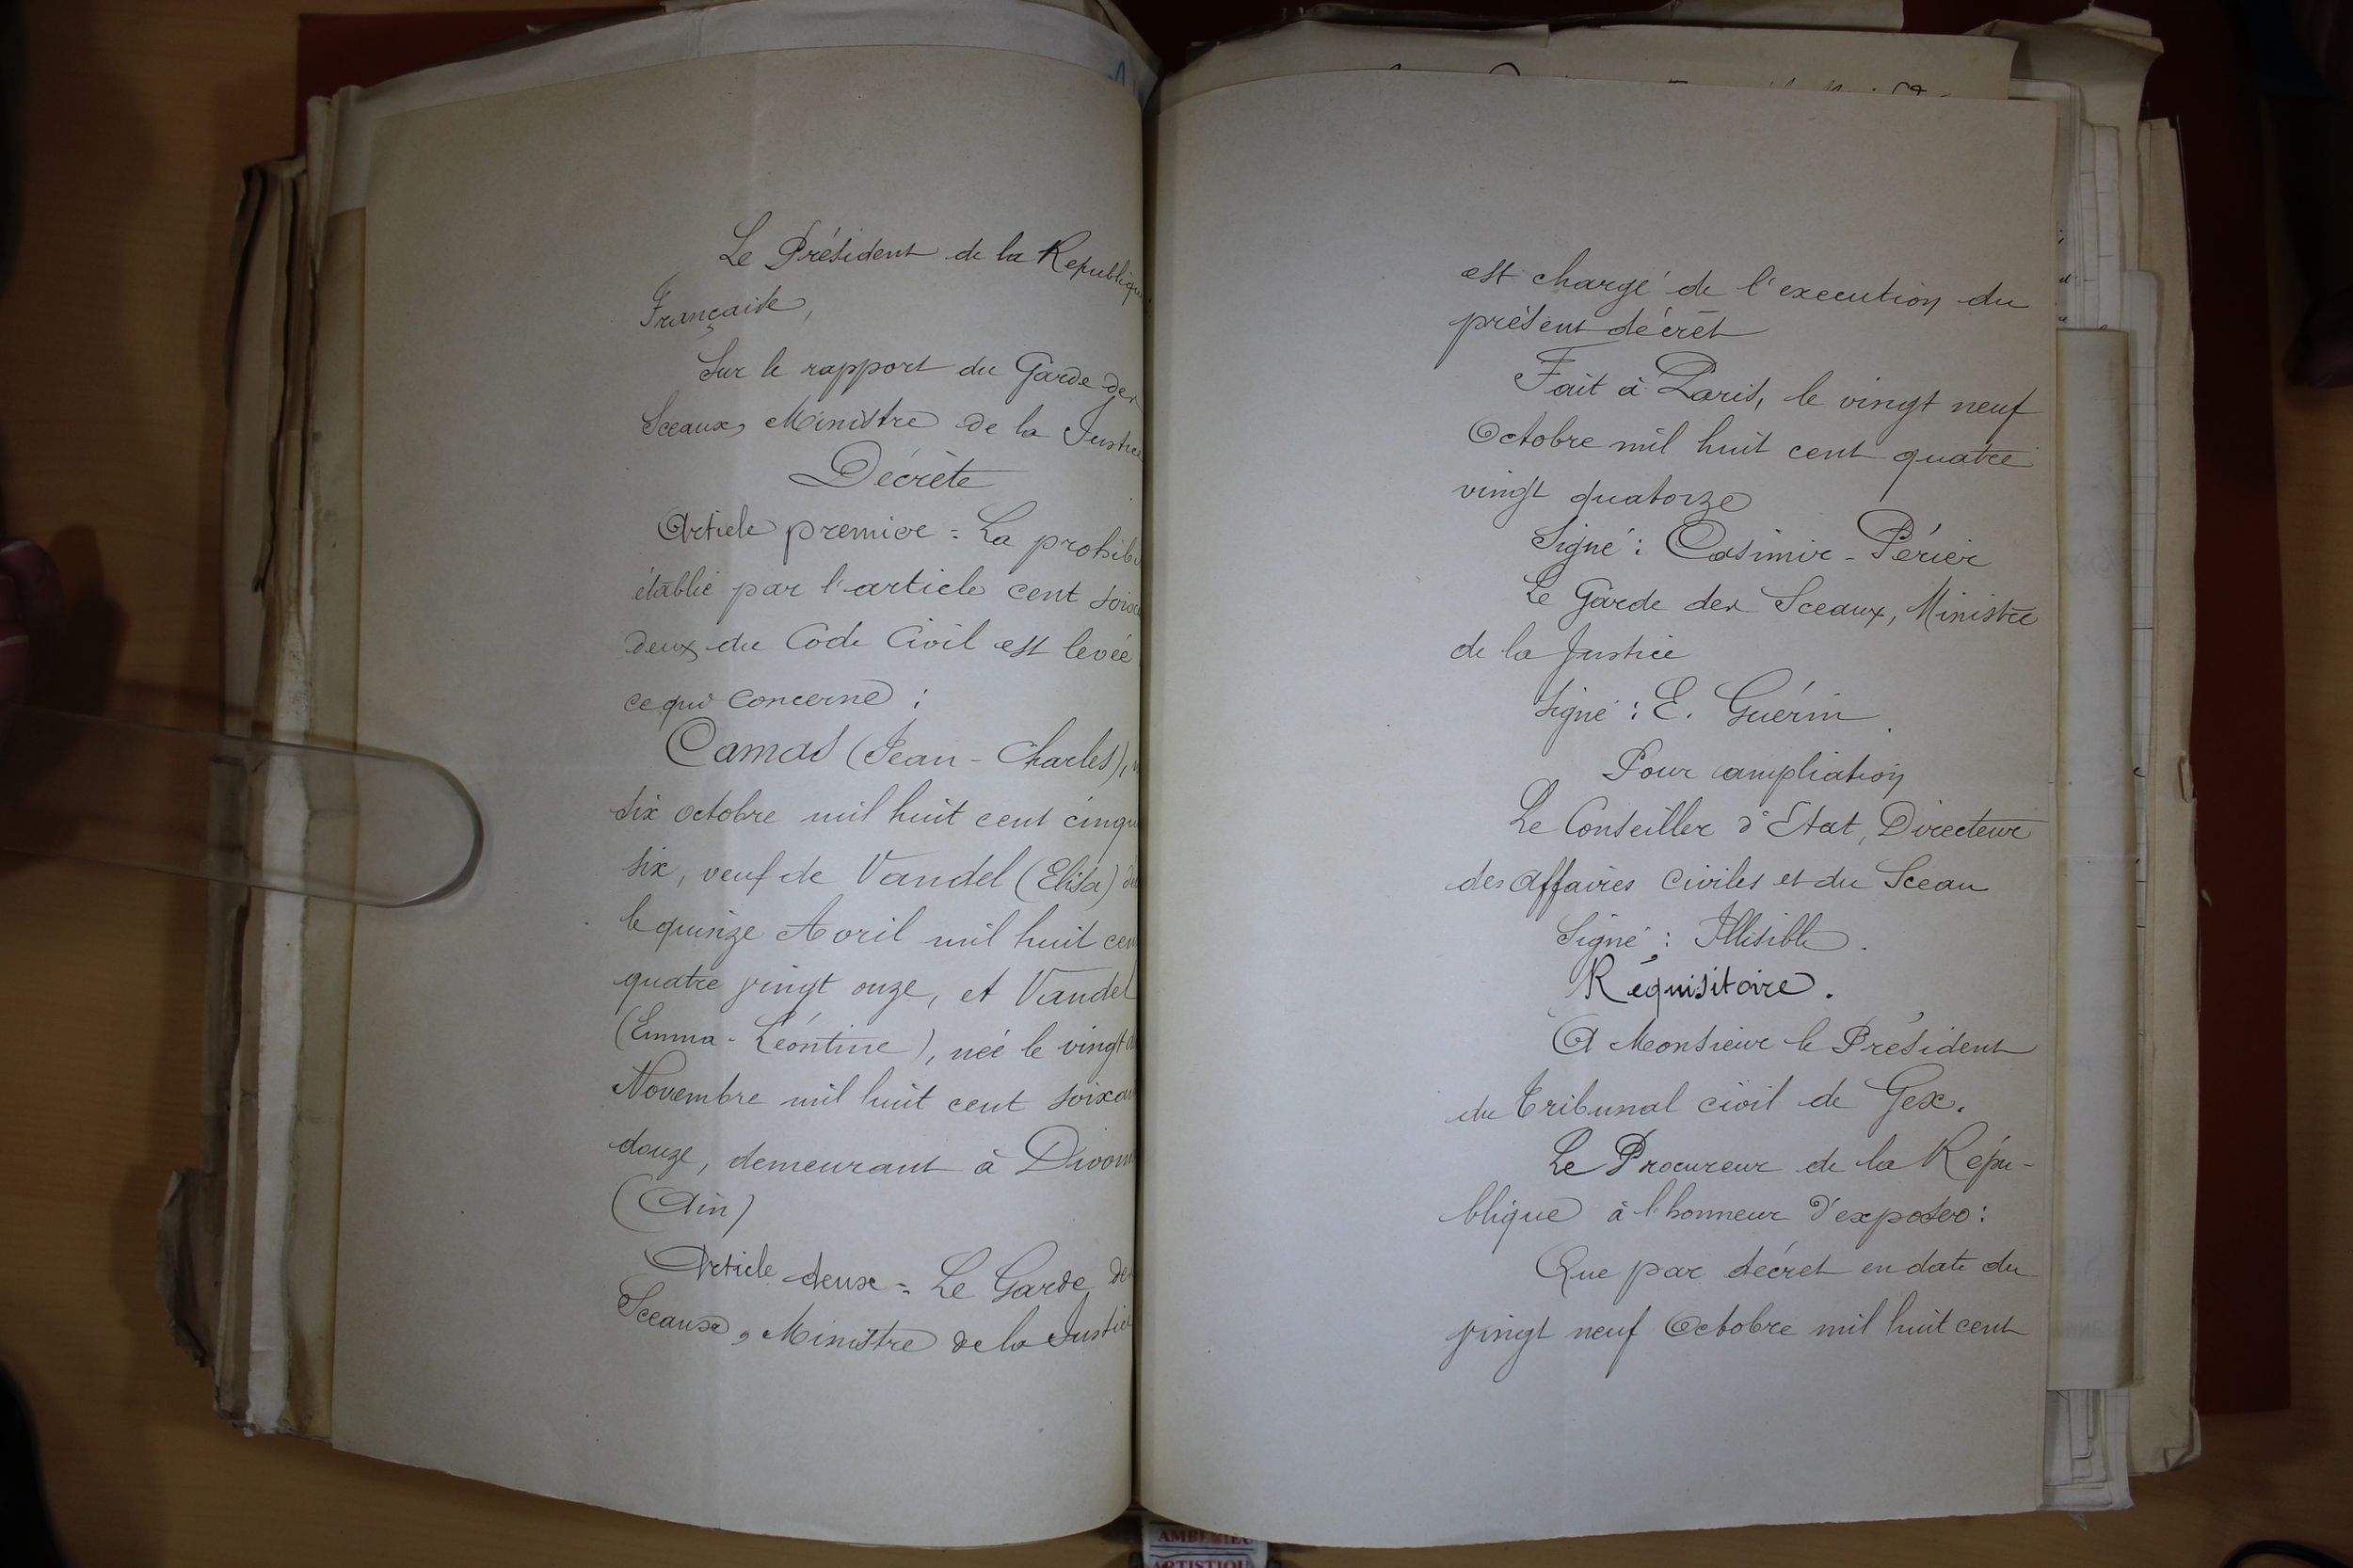 Le Président de la Republique
Française,
Sur le rapport du Garde des
Sceaux, Ministre de la Justice
Décrète
Article premier = La prohib
établie par l'article cent soix
deux du Code Civil est levée
ce qui concerne :
Camas (Jean-Charles),
six octobre mil huit cent cinqu
six, veuf de Vandel (Elisa)
le quinze Avril mil huit cen
quatre vingt onze, et Vandel
(Emma-Léontine), née le vingt
Novembre mil huit cent soixan
douze, demeurant à Divonn
(Ain)
Article deux = Le Garde des
Sceaux, Ministre de la Justice
est chargé de l'execution du
présent décret
Fait à Paris, le vingt neuf
Octobre mil huit cent quatre
vingt quatorze
Signé : Casimir-Périer
Le Garde des Sceaux, Ministre
de la Justice
Signé : E. Guérin
Pour ampliation
Le Conseiller d'Etat, Directeur
des Affaires Civiles et du Sceau
Signé : Illisible.
Réquisitoire.
A Monsieur le Président
du Tribunal civil de Gex.
Le Procureur de la Répu-
blique à l'honneur d'exposer :
Que par décret en date du
vingt neuf Octobre mil huit cent